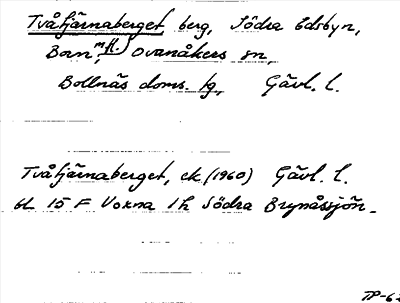 Tvåtjärnaberget berg, Södra Edsbyn,
Born, m fl. Ovanåkers sn,
Bollnäs doms. tg, Gävl. l.
Tvåtjärnaberget, ek. (1960) Gävl. l.
bl 15 F Voxna 1 h Södra Brynåssjön.